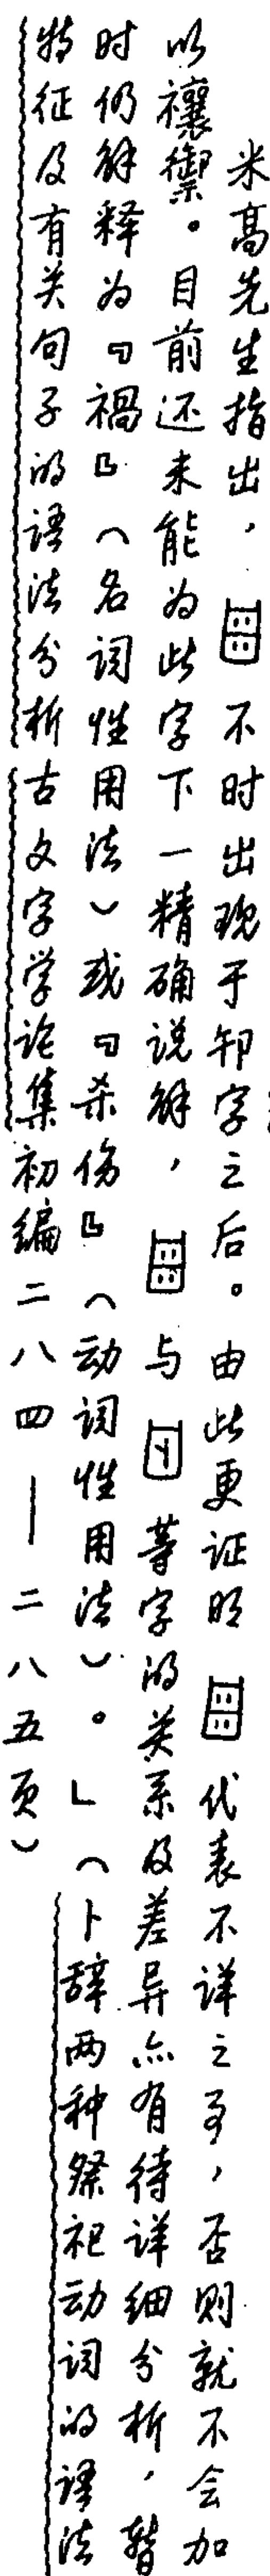 米高先生指出，不时出现于卸字之后。由此更证明代表不详之事，否则就不会加
以禳禦。目前还未能为此字下一精确说解，与等字的关系及差异亦有待详细分析，暂
时仍解释为『祸』（名词性用法）或『杀伤』（动词性用法）。」（卜辞两种祭祀动词的语法
特征及有关句子的语法分析古文字学论集初编二八四——二八五页）